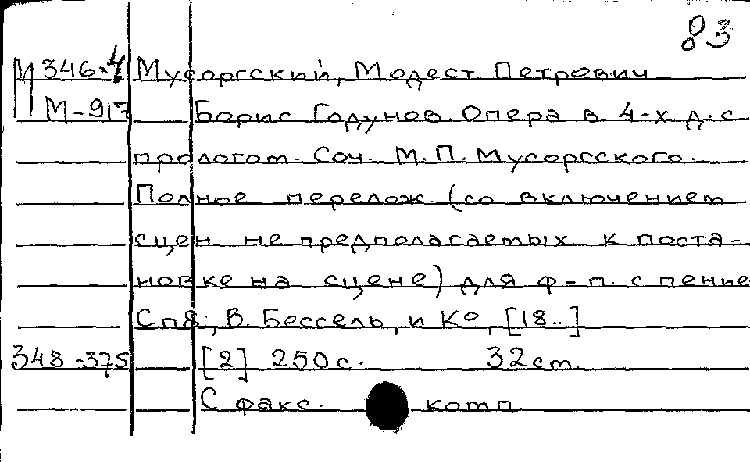 83
М 346-4 Мусоргский, Модест Петрович
М-917 Борис Годунов Опера в 4-х д. с
прологом. Соч. М.П. Мусоргского.
Полное перелож (со включением
сцен не предполагаемых к поста-
новке на сцене) для ф-п. с пение
Спб; В. Бессель, и Ко, [18..]
348-375 [2] 250 с. 32 cm.
С факс. комп